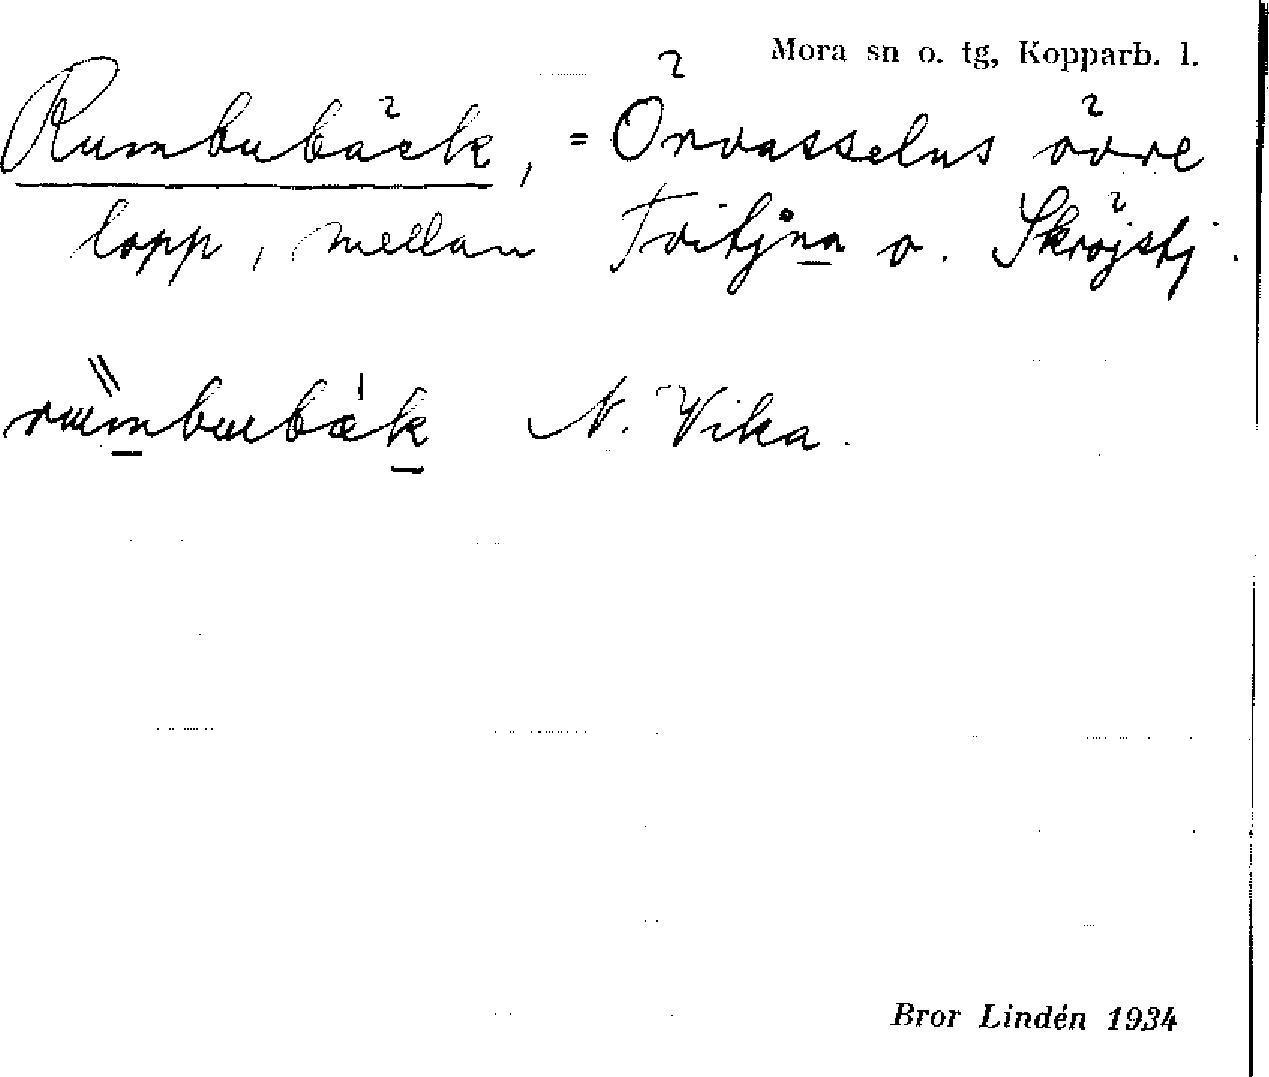 Mora sn o. tg, Kopparb. l.
Rumbubäck, = Örvasselns övre
lopp, mellan Tvitjṇạ o. Skröjstj.
rumbubäk N. Vika.
Bror Lindén 1934